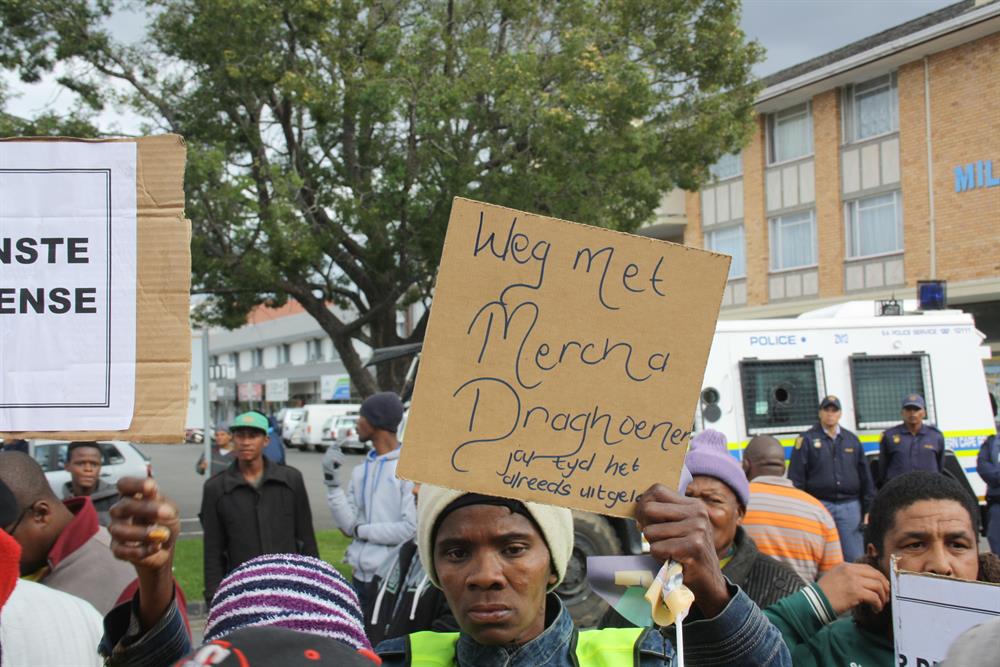 NSTE
ENSE
Weg Met
Mercna
Draghoener
jou tyd het
alreeds uitgelo
MIL
POLICE
S.A POLICE SERVICE 10111